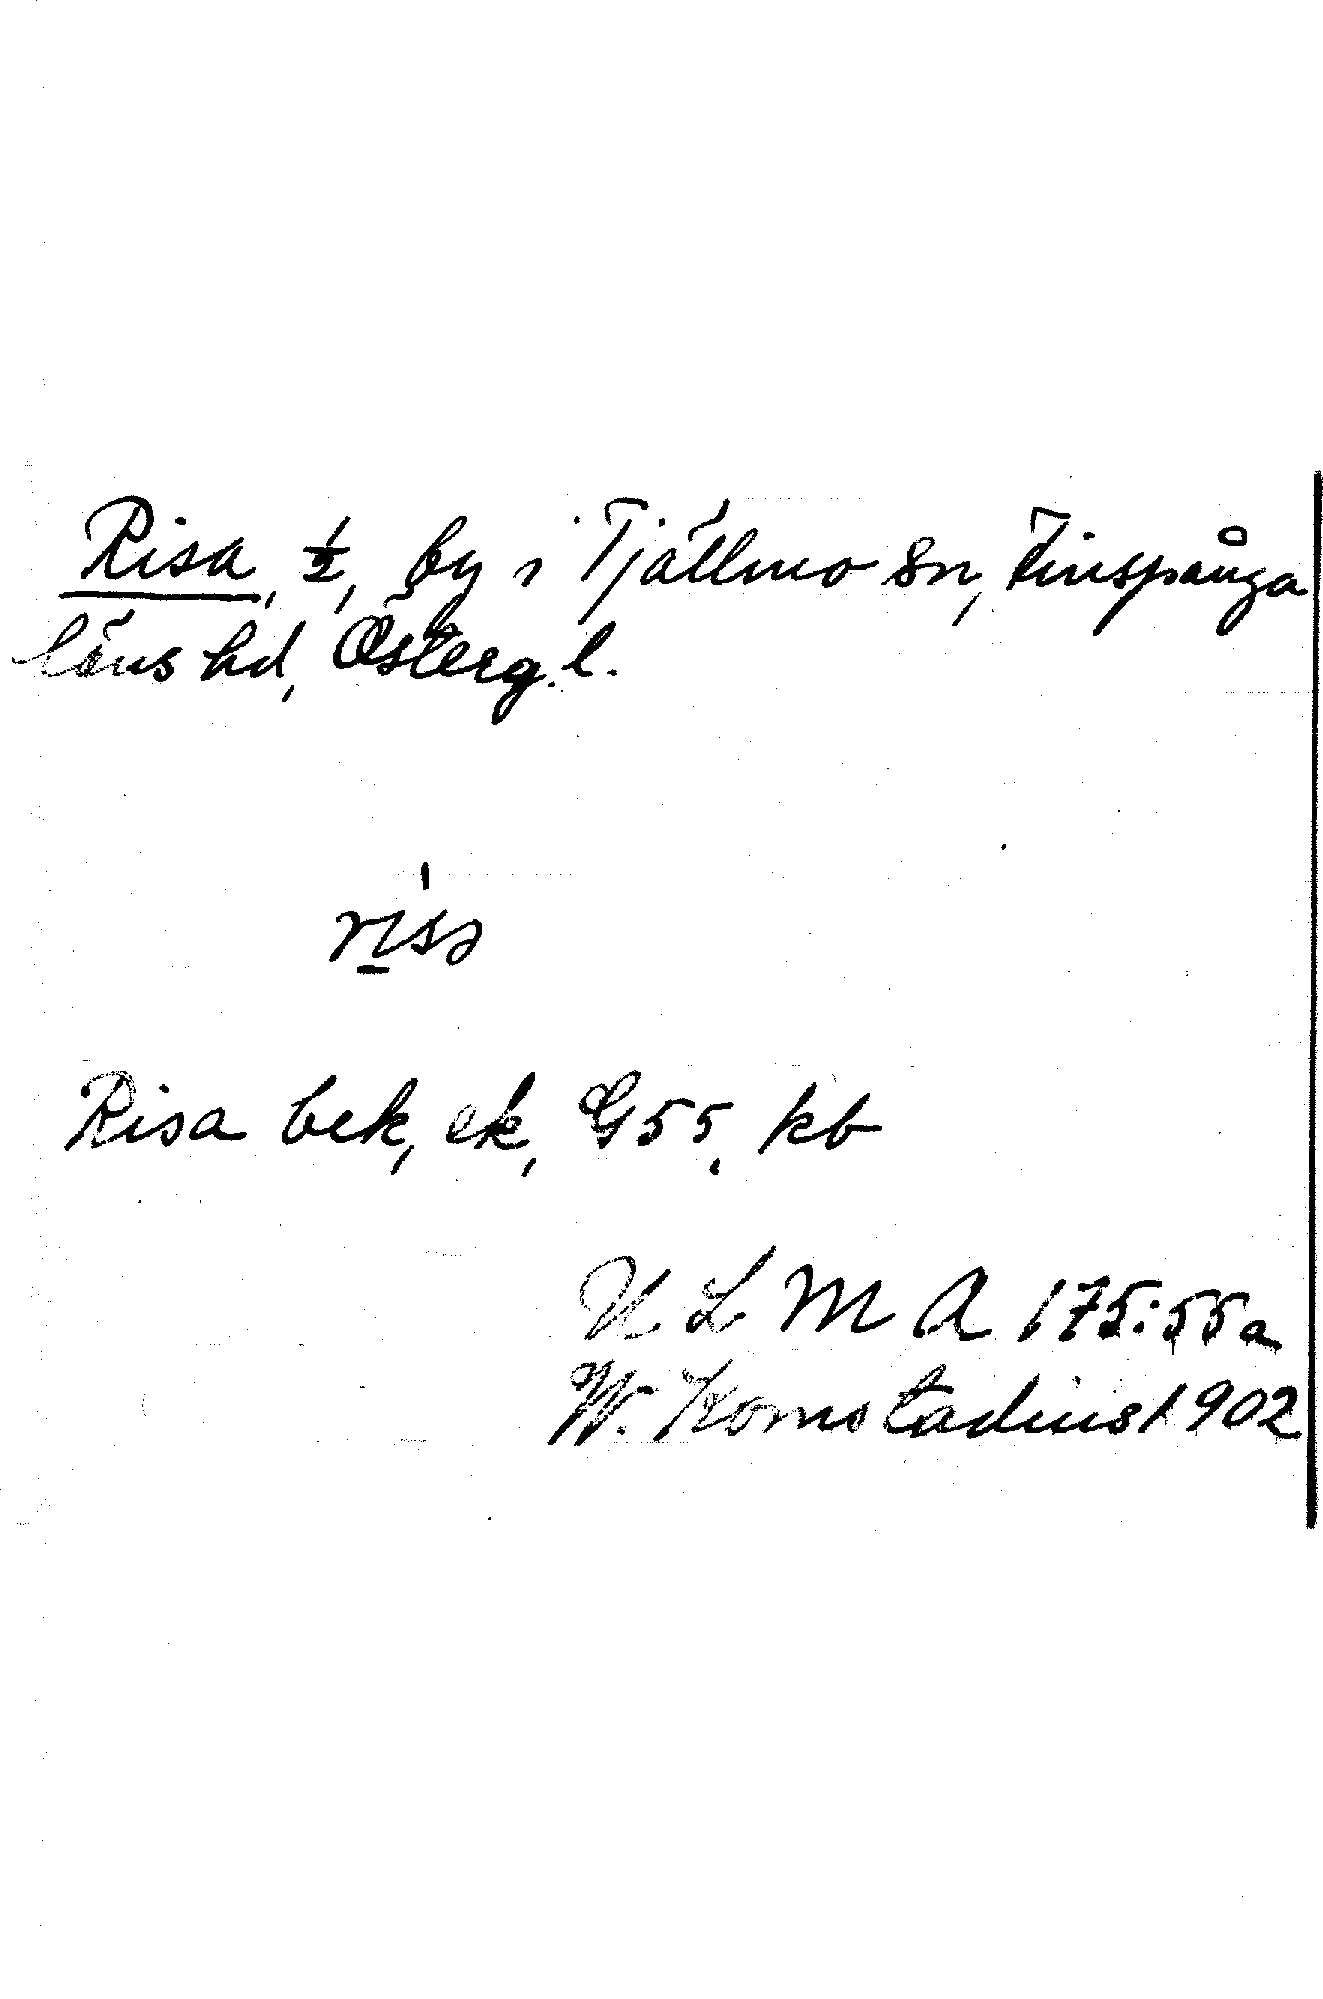 Risa, ½, by i Tjällmo sn, Finspånga
läns hd, Österg. l.
risə
Risa bek, ek, G55, kb
U L M A 175:55a
W. Komstadius 1902